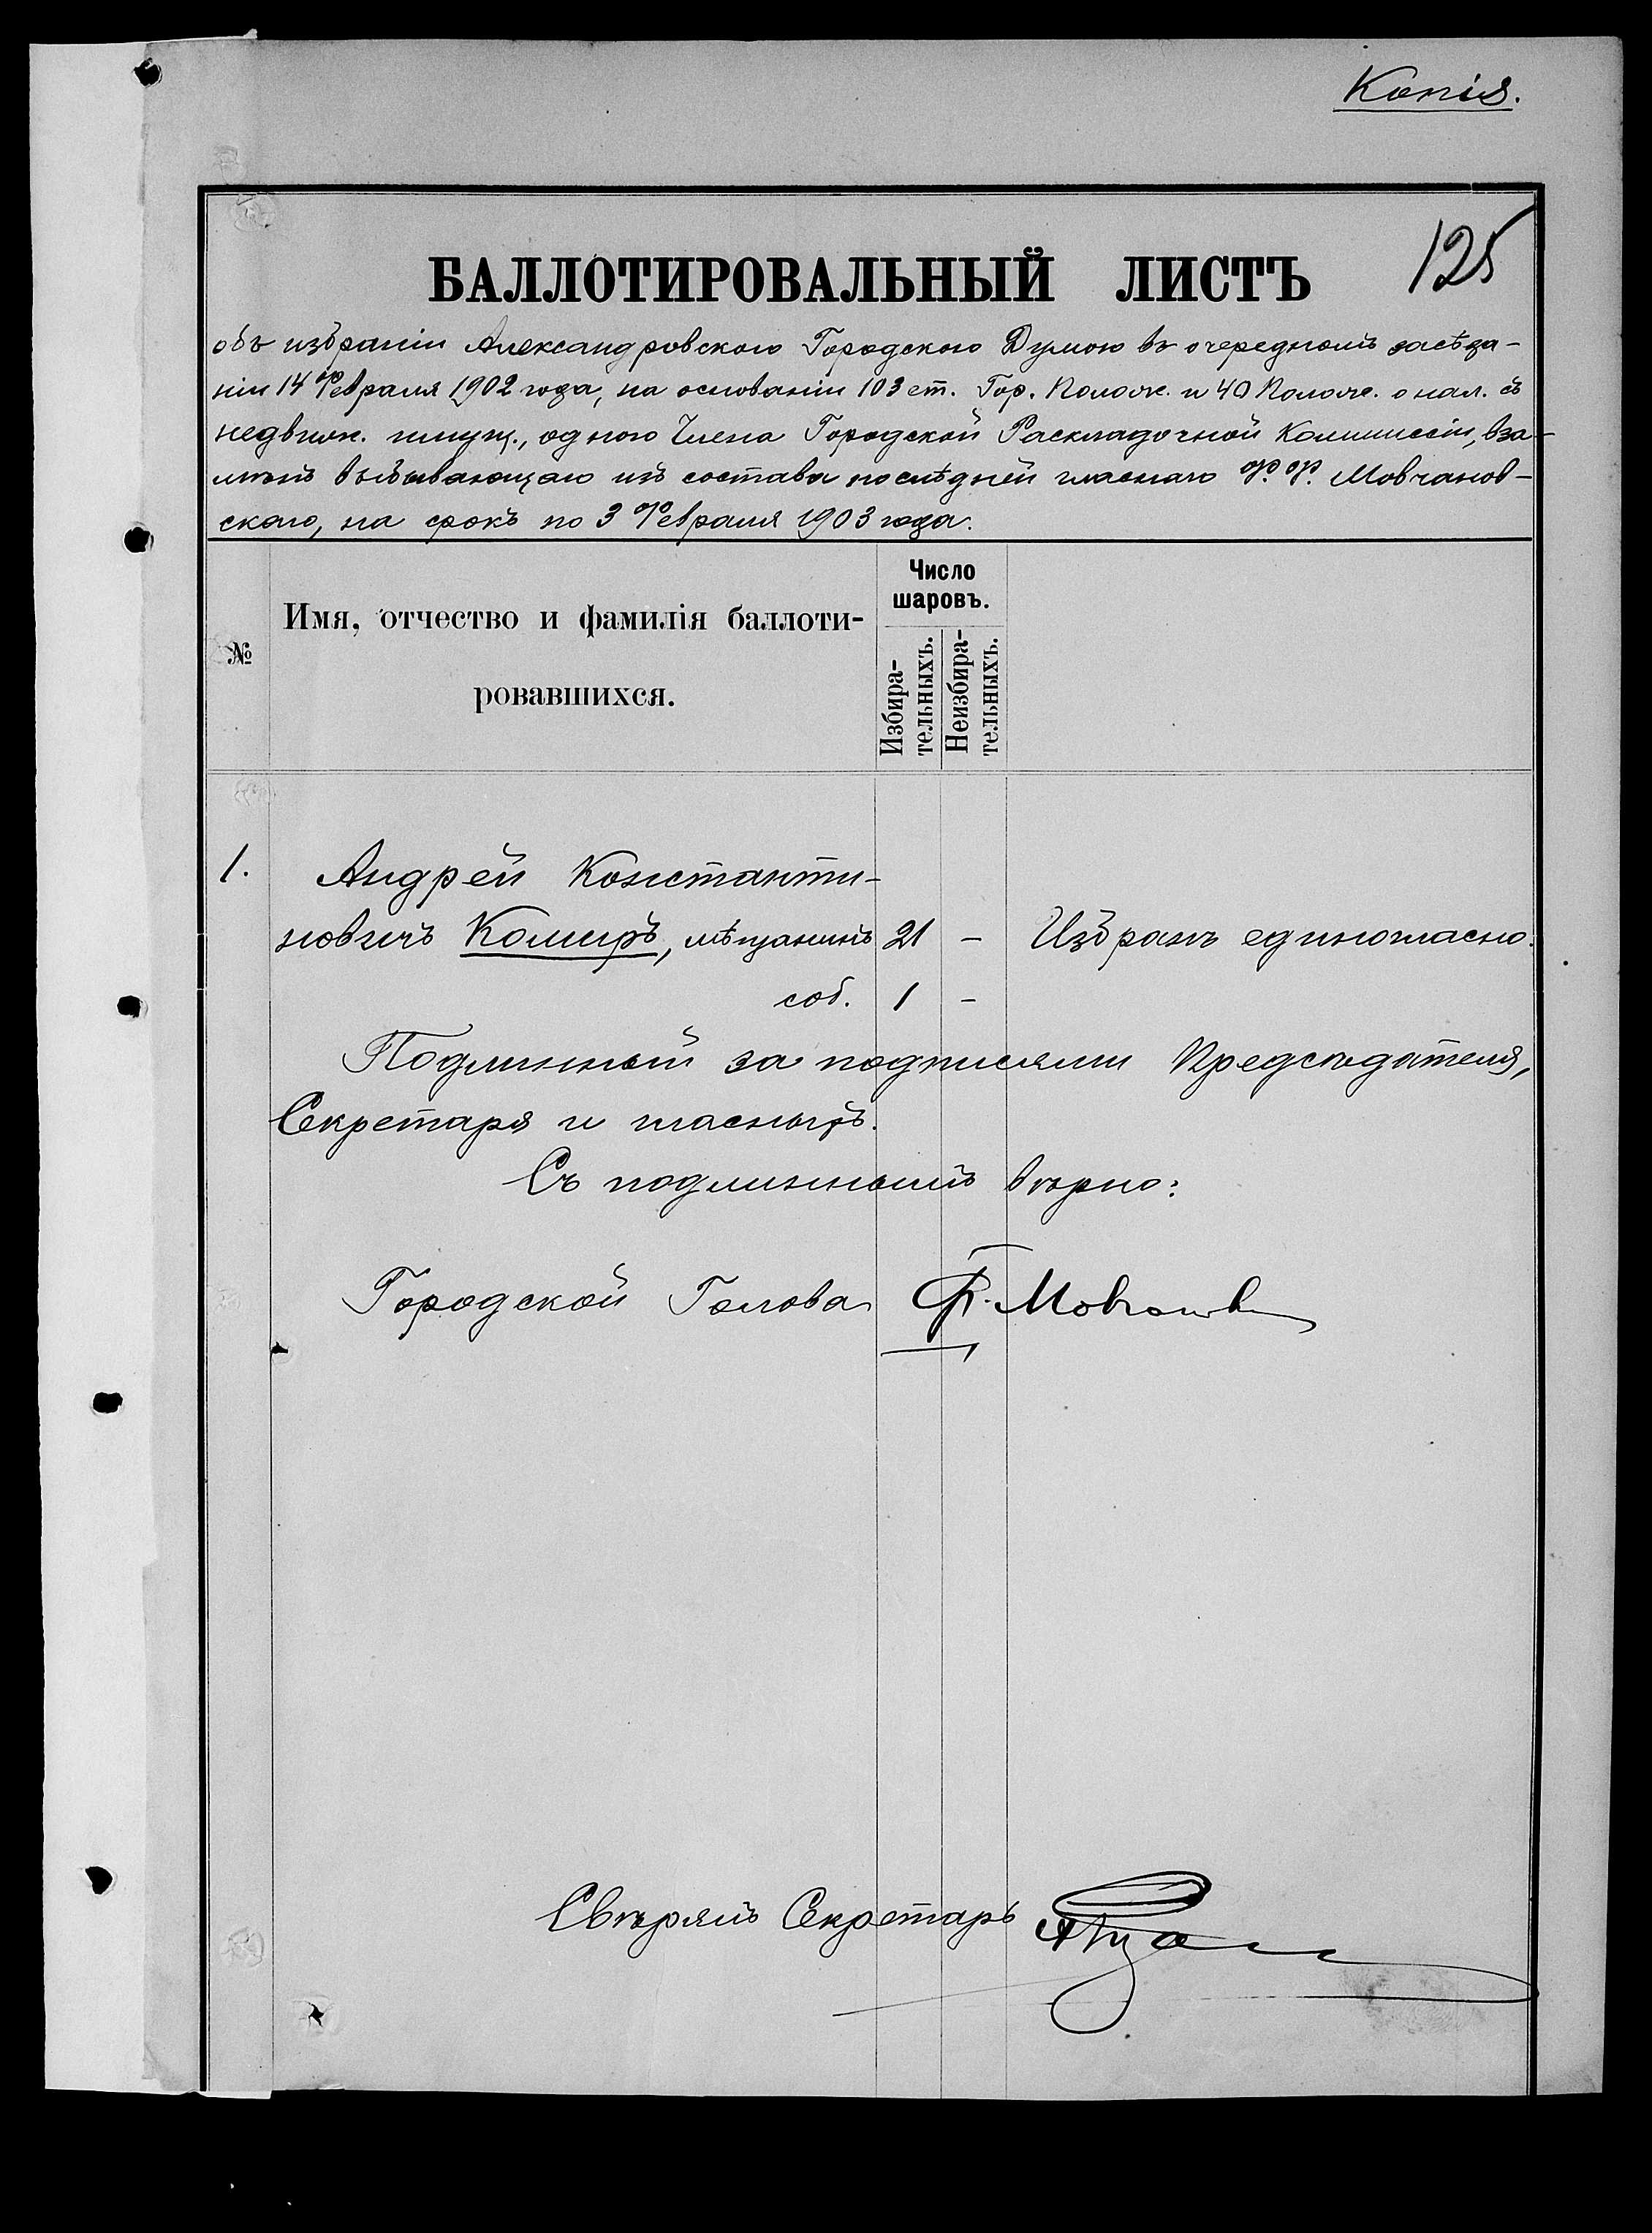 Копія.
125
БАЛЛОТИРОВАЛЬНЫЙ ЛИСТЪ
объ избраніи Александровскою Городскою Думою въ очередномъ засѣда-
ніи 14 Февраля 1902 года, на основаніи 103 ст. Гор. Полож. и 40 Полож. о нал. съ
недвиж. имущ., одного Члена Городской Раскладочной Коммиссіи, вза-
мѣнъ выбывающаго изъ состава послѣдней гласнаго Ф. Ф. Мовчанов-
скаго, на срокъ по 3 Февраля 1903 года.
№
Имя, отчество и фамилія баллоти-
ровавшихся.
Число
шаровъ.
Избира-
тельныхъ.
Неизбира-
тельныхъ.
1. Андрей Константи-
новичъ Комиръ, мѣщанинъ 21 - Избранъ единогласно.
соб. 1 -
Подлинный за подписями Предсѣдателя,
Секретаря и гласныхъ.
Съ подлиннымъ вѣрно:
Городской Голова Ф. Мовчановс
Свѣрялъ Секретарь